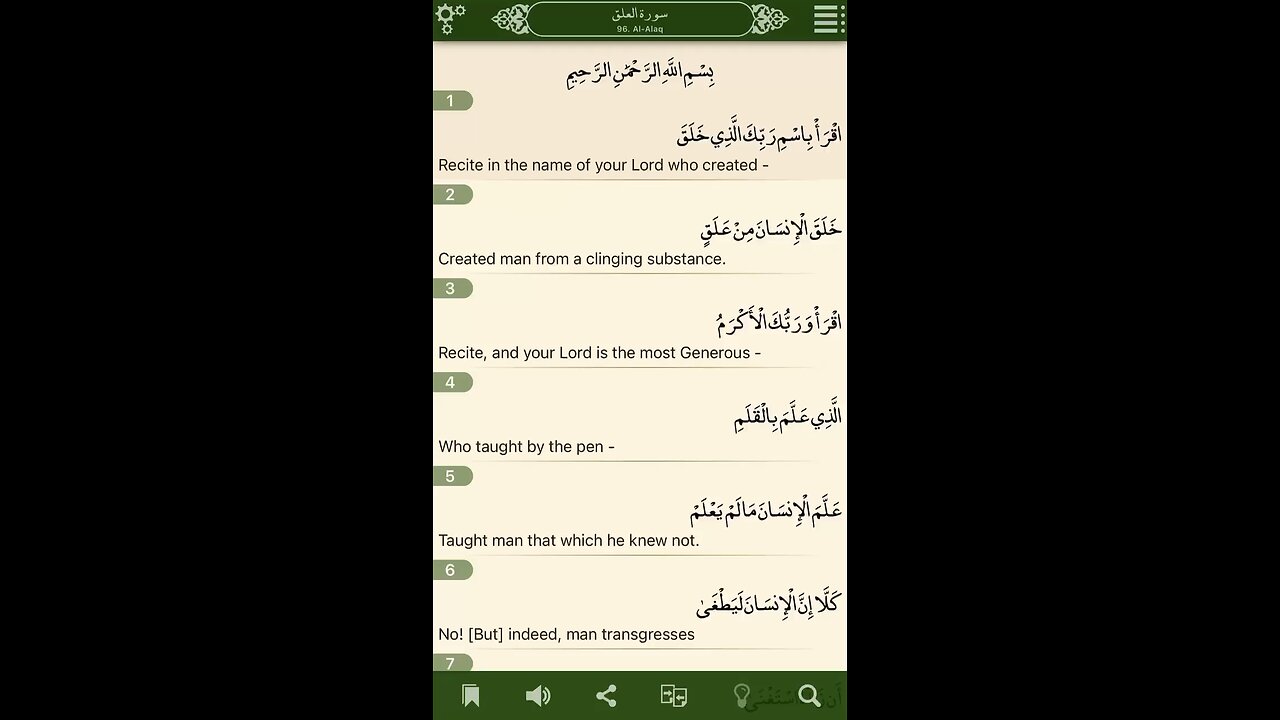 سورة العلق
96. Al-Alaq
بِسْمِ اللَّهِ الرَّحْمَٰنِ الرَّحِيمِ
1
اقْرَأْ بِاسْمِ رَبِّكَ الَّذِي خَلَقَ
Recite in the name of your Lord who created -
2
خَلَقَ الْإِنسَانَ مِنْ عَلَقٍ
Created man from a clinging substance.
3
اقْرَأْ وَرَبُّكَ الْأَكْرَمُ
Recite, and your Lord is the most Generous -
4
الَّذِي عَلَّمَ بِالْقَلَمِ
Who taught by the pen -
5
عَلَّمَ الْإِنسَانَ مَا لَمْ يَعْلَمْ
Taught man that which he knew not.
6
كَلَّا إِنَّ الْإِنسَانَ لَيَطْغَىٰ
No! [But] indeed, man transgresses
7